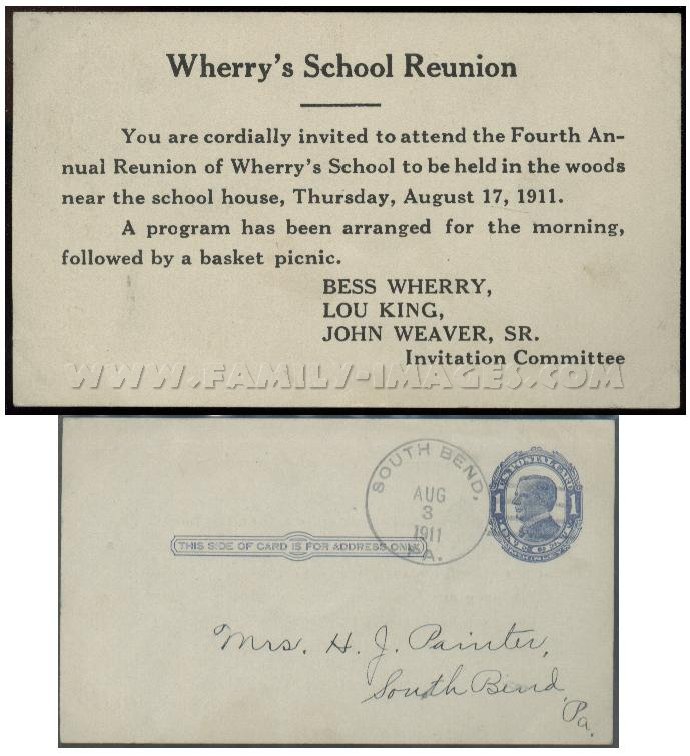 Wherry's School Reunion
You are cordially invited to attend the Fourth An-
nual Reunion of Wherry's School to be held in the woods
near the school house, Thursday, August 17, 1911.
A program has been arranged for the morning,
followed by a basket picnic.
BESS WHERRY,
LOU KING,
JOHN WEAVER, SR.
Invitation Committee
WWW.FAMILY-IMAGES.COM
SOUTH BEND,
AUG
3
1911
PA.
U.S. POSTAL CARD
1 1
THIS SIDE OF CARD IS FOR ADDRESS ONLY
Mrs. H. J. Painter,
South Bend,
Pa.